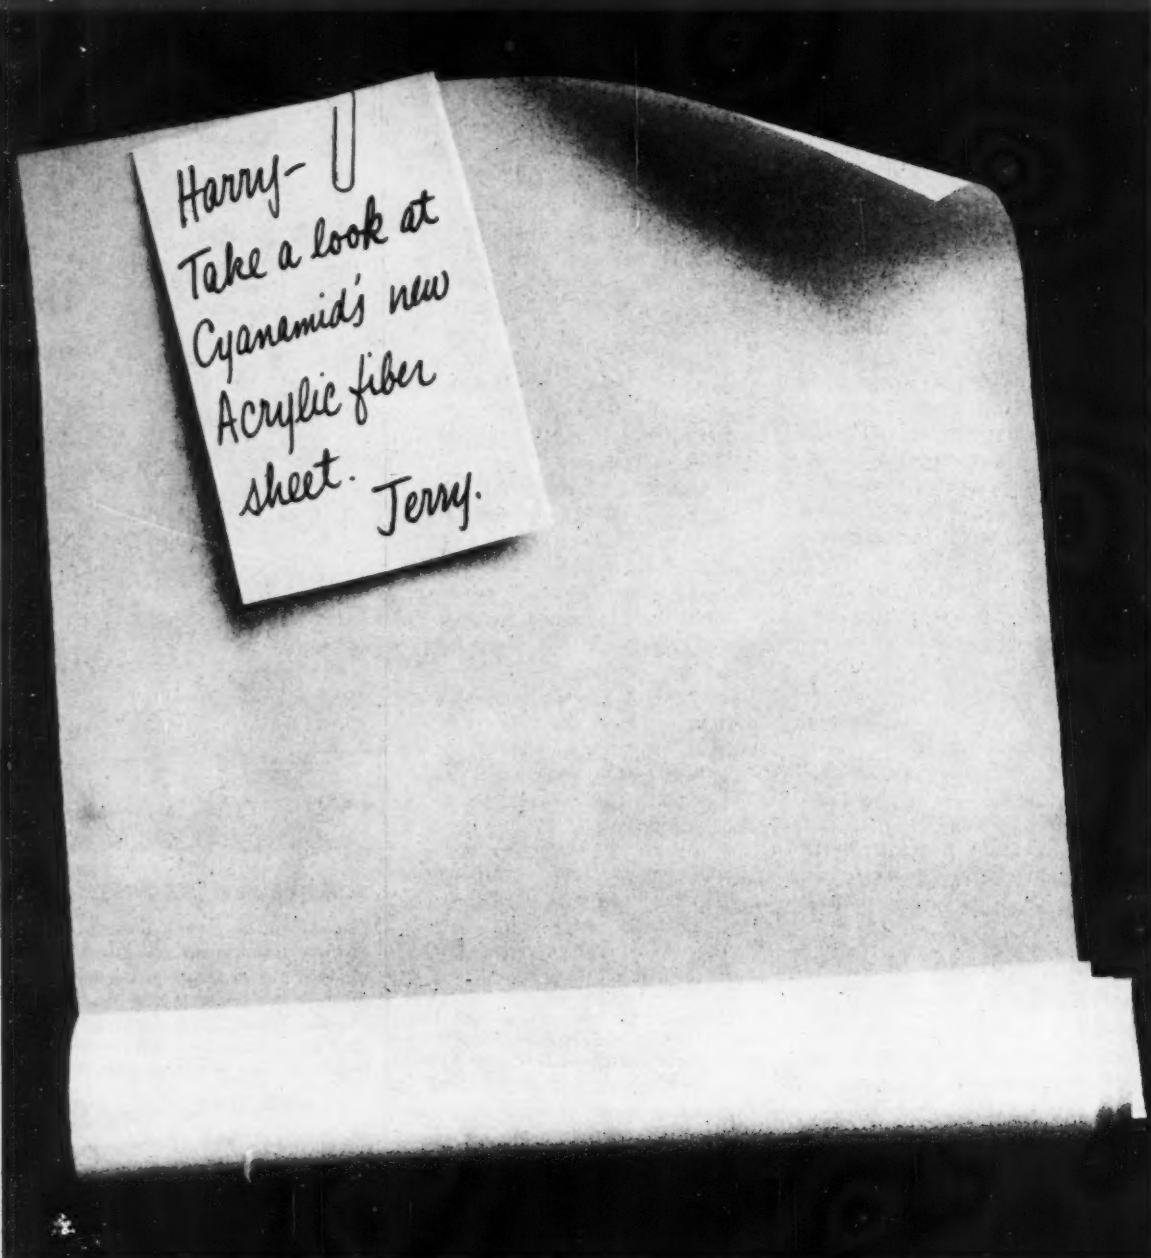 Harry-
Take a look at
Cyanamid's new
Acrylic fiber
sheet.
Jerry.